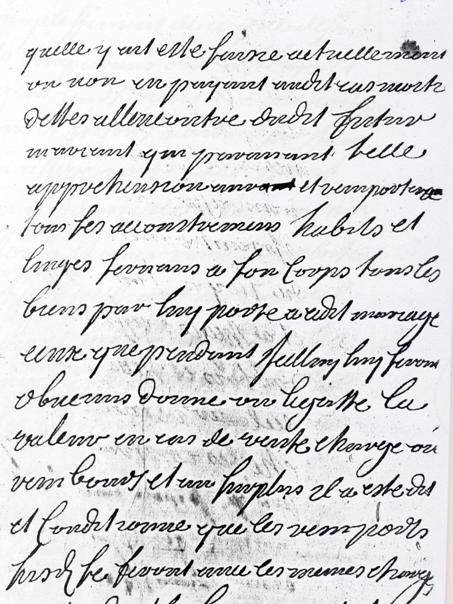 quelle y ait esté saisie actuellement
ou non en payant audit cas moitié
dettes allencontre dudit futur
marient qui paravant telle
apprehension aura et remportera
tous ses accoustremens habits et
linges servans a son Corps tous les
biens par luy porté audit mariage
ceux que pendant Icelluy luy seront
obvenus donné ou legatté la
valeur en cas de vente charge ou
rembours et au surplus Il a esté dit
et Conditionné que les remports
susd se feront avec les mesmes charges